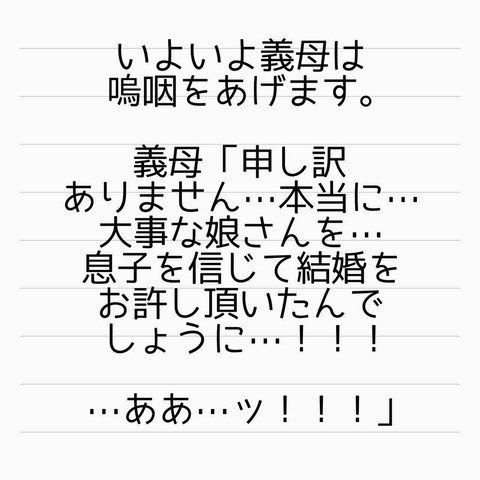 いよいよ義母は
嗚咽をあげます。
義母「申し訳
ありません…本当に…
大事な娘さんを…
息子を信じて結婚を
お許し頂いたんで
しょうに…！！！
…ああ…ッ！！！」